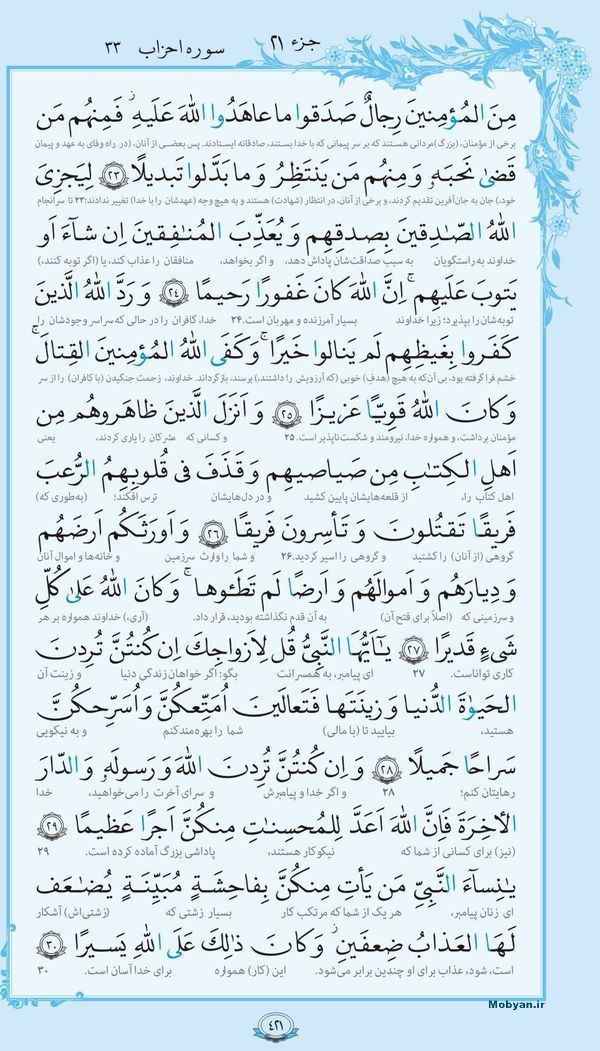 جزء ۲۱
سوره احزاب ۳۳
مِنَ المُؤمِنينَ رِجالٌ صَدَقوا ما عاهَدُوا اللهَ عَلَيهِ ۖ فَمِنهُم مَن
برخی از مؤمنان، (بزرگ)مردانی هستند که بر سر پیمانی که با خدا بستند، صادقانه ایستادند. پس بعضی از آنان، (در راه وفای به عهد و پیمان
قَضىٰ نَحبَهُ وَ مِنهُم مَن يَنتَظِرُ وَ ما بَدَّلوا تَبديلًا ﴿۲۳﴾ لِيَجزِىَ
خود،) جان به جان‌آفرین تقدیم کردند، و برخی از آنان، در انتظار (شهادت) هستند و به هیچ وجه (عهدشان را با خدا) تغییر ندادند؛ ۲۳ تا سرانجام
اللهُ الصّادِقينَ بِصِدقِهِم وَ يُعَذِّبَ المُنافِقينَ اِن شاءَ اَو
خداوند به راستگویان به سبب صداقت‌شان پاداش دهد، و اگر بخواهد، منافقان را عذاب کند، یا (اگر توبه کنند،)
يَتوبَ عَلَيهِم ۚ اِنَّ اللهَ كانَ غَفورًا رَحيمًا ﴿۲۴﴾ وَ رَدَّ اللهُ الَّذينَ
توبه‌شان را بپذیرد؛ زیرا خداوند بسیار آمرزنده و مهربان است. ۲۴ خدا، کافران را در حالی که سراسر وجودشان را
كَفَروا بِغَيظِهِم لَم يَنالوا خَيرًا ۚ وَ كَفَى اللهُ المُؤمِنينَ القِتالَ ۚ
خشم فرا گرفته بود، بی آن‌که به هیچ (هدفِ) خوبی (که آرزویش را داشتند،) برسند، بازگرداند. خداوند، زحمت جنگیدن (با کافران) را از سر
وَ كانَ اللهُ قَوِيًّا عَزيزًا ﴿۲۵﴾ وَ اَنزَلَ الَّذينَ ظاهَروهُم مِن
مؤمنان برداشت، و همواره خدا، نیرومند و شکست‌ناپذیر است. ۲۵ و کسانی که مشرکان را یاری کردند، یعنی
اَهلِ الكِتابِ مِن صَياصيهِم وَ قَذَفَ فى قُلوبِهِمُ الرُّعبَ
اهل کتاب را، از قلعه‌هایشان پایین کشید و در دل‌هایشان ترس افکند؛ (به‌طوری که)
فَريقًا تَقتُلونَ وَ تَأسِرونَ فَريقًا ﴿۲۶﴾ وَ اَورَثَكُم اَرضَهُم
گروهی (از آنان) را کشتید و گروهی را اسیر کردید. ۲۶ و شما را وارث سرزمین و خانه‌ها و اموال آنان
وَ دِيارَهُم وَ اَموالَهُم وَ اَرضًا لَم تَطَـٔوها ۚ وَ كانَ اللهُ عَلىٰ كُلِّ
و سرزمینی که (اصلاً برای فتح آن) به آن قدم نگذاشته بودید، قرار داد. (آری،) خداوند همواره بر هر
شَىءٍ قَديرًا ﴿۲۷﴾ يٰاَيُّهَا النَّبِىُّ قُل لِاَزواجِكَ اِن كُنتُنَّ تُرِدنَ
کاری تواناست. ۲۷ ای پیامبر، به همسرانت بگو: اگر خواهان زندگی دنیا و زینت آن
الحَيوٰةَ الدُّنيا وَ زينَتَها فَتَعالَينَ اُمَتِّعكُنَّ وَ اُسَرِّحكُنَّ
هستید، بیایید تا (با مالی) شما را بهره‌مند کنم و به نیکویی
سَراحًا جَميلًا ﴿۲۸﴾ وَ اِن كُنتُنَّ تُرِدنَ اللهَ وَ رَسولَهُ وَ الدّارَ
رهایتان کنم؛ ۲۸ و اگر خدا و پیامبرش و سرای آخرت را می‌خواهید، خدا
الـٔاخِرَةَ فَاِنَّ اللهَ اَعَدَّ لِلمُحسِناتِ مِنكُنَّ اَجرًا عَظيمًا ﴿۲۹﴾
(نیز) برای کسانی از شما که نیکوکار هستند، پاداشی بزرگ آماده کرده است. ۲۹
يٰنِساءَ النَّبِىِّ مَن يَأتِ مِنكُنَّ بِفاحِشَةٍ مُبَيِّنَةٍ يُضاعَف
ای زنان پیامبر، هر یک از شما که مرتکب کار بسیار زشتی که (زشتی‌اش) آشکار
لَهَا العَذابُ ضِعفَينِ ۚ وَ كانَ ذٰلِكَ عَلَى اللهِ يَسيرًا ﴿۳۰﴾
است، شود، عذاب برای او چندین برابر می‌شود. این (کار) همواره برای خدا آسان است. ۳۰
Mobyan.ir
۴۲۱